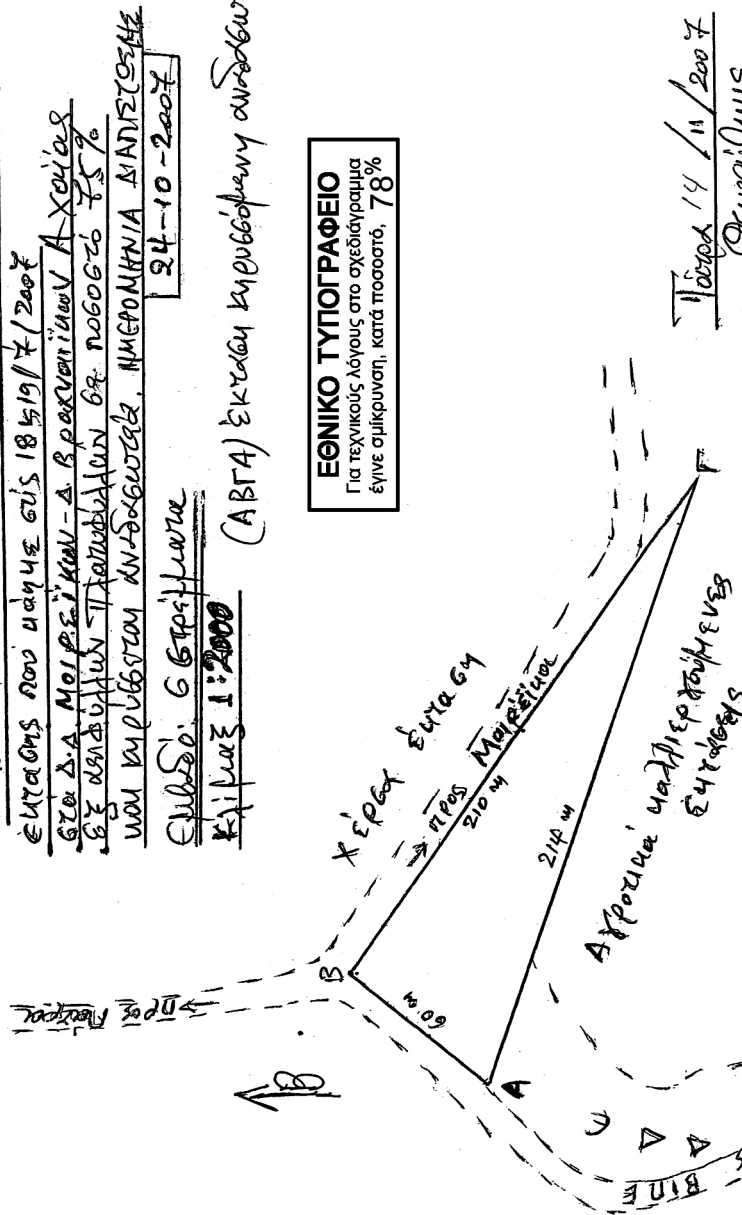 έκτασης που κάηκε στις 18 & 19/7/2007
στα Δ.Δ. Μοιρεΐκων - Δ. Βραχναιΐκων Αχαΐας
με αειφύλλων Πλατυφύλλων σε ποσοστό 75%
και κηρύσσεται αναδασωτέα. ΗΜΕΡΟΜΗΝΙΑ ΔΙΑΠΙΣΤΩΣΗΣ
24-10-2007
Εμβαδό: 6 στρέμματα
Κλίμαξ 1:2000
(ΑΒΓΑ) Έκταση κηρυσσόμενη
ΕΘΝΙΚΟ ΤΥΠΟΓΡΑΦΕΙΟ
Για τεχνικούς λόγους στο σχεδιάγραμμα
έγινε σμίκρυνση, κατά ποσοστό, 78%
προς Πάτρα
Β
Β
Χέρσα έκταση
προς Μοιρέικα
210 m
60 m
214 m
Α
Γ
Αγροτικά καλλιεργούμενες
εκτάσεις
ΒΙΠΕ
Πάτρα 14/11/2007